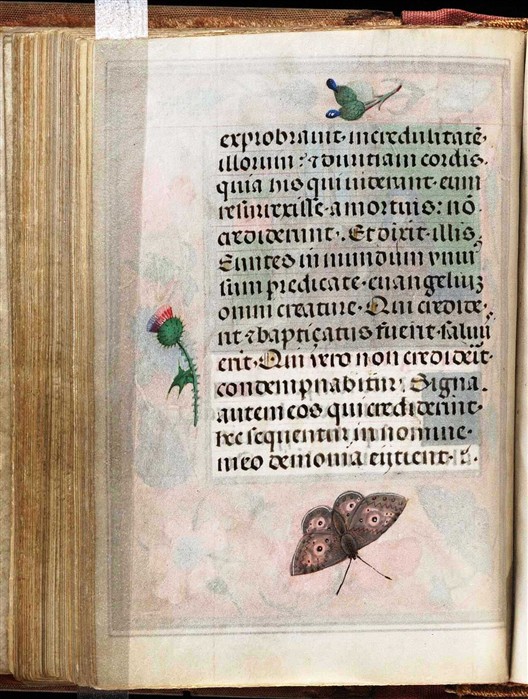 exprobrauit· incredulitatē·
illorum : ⁊ duritiam cordis·
quia his qui uiderant· eum
resurrexisse· a mortuis: nō·
crediderunt·. Et dixit· illis·
Euntes in mundum vniu
sum predicate· euangeliuʒ
omni creature·. Qui credide·
rit· ⁊ baptiçatus fuerit· saluus
erit· Qui vero non crediderit·
condempnabitur· Signa·
autem eos qui crediderint·
hec sequentur in nomine·
meo demonia eijcient·